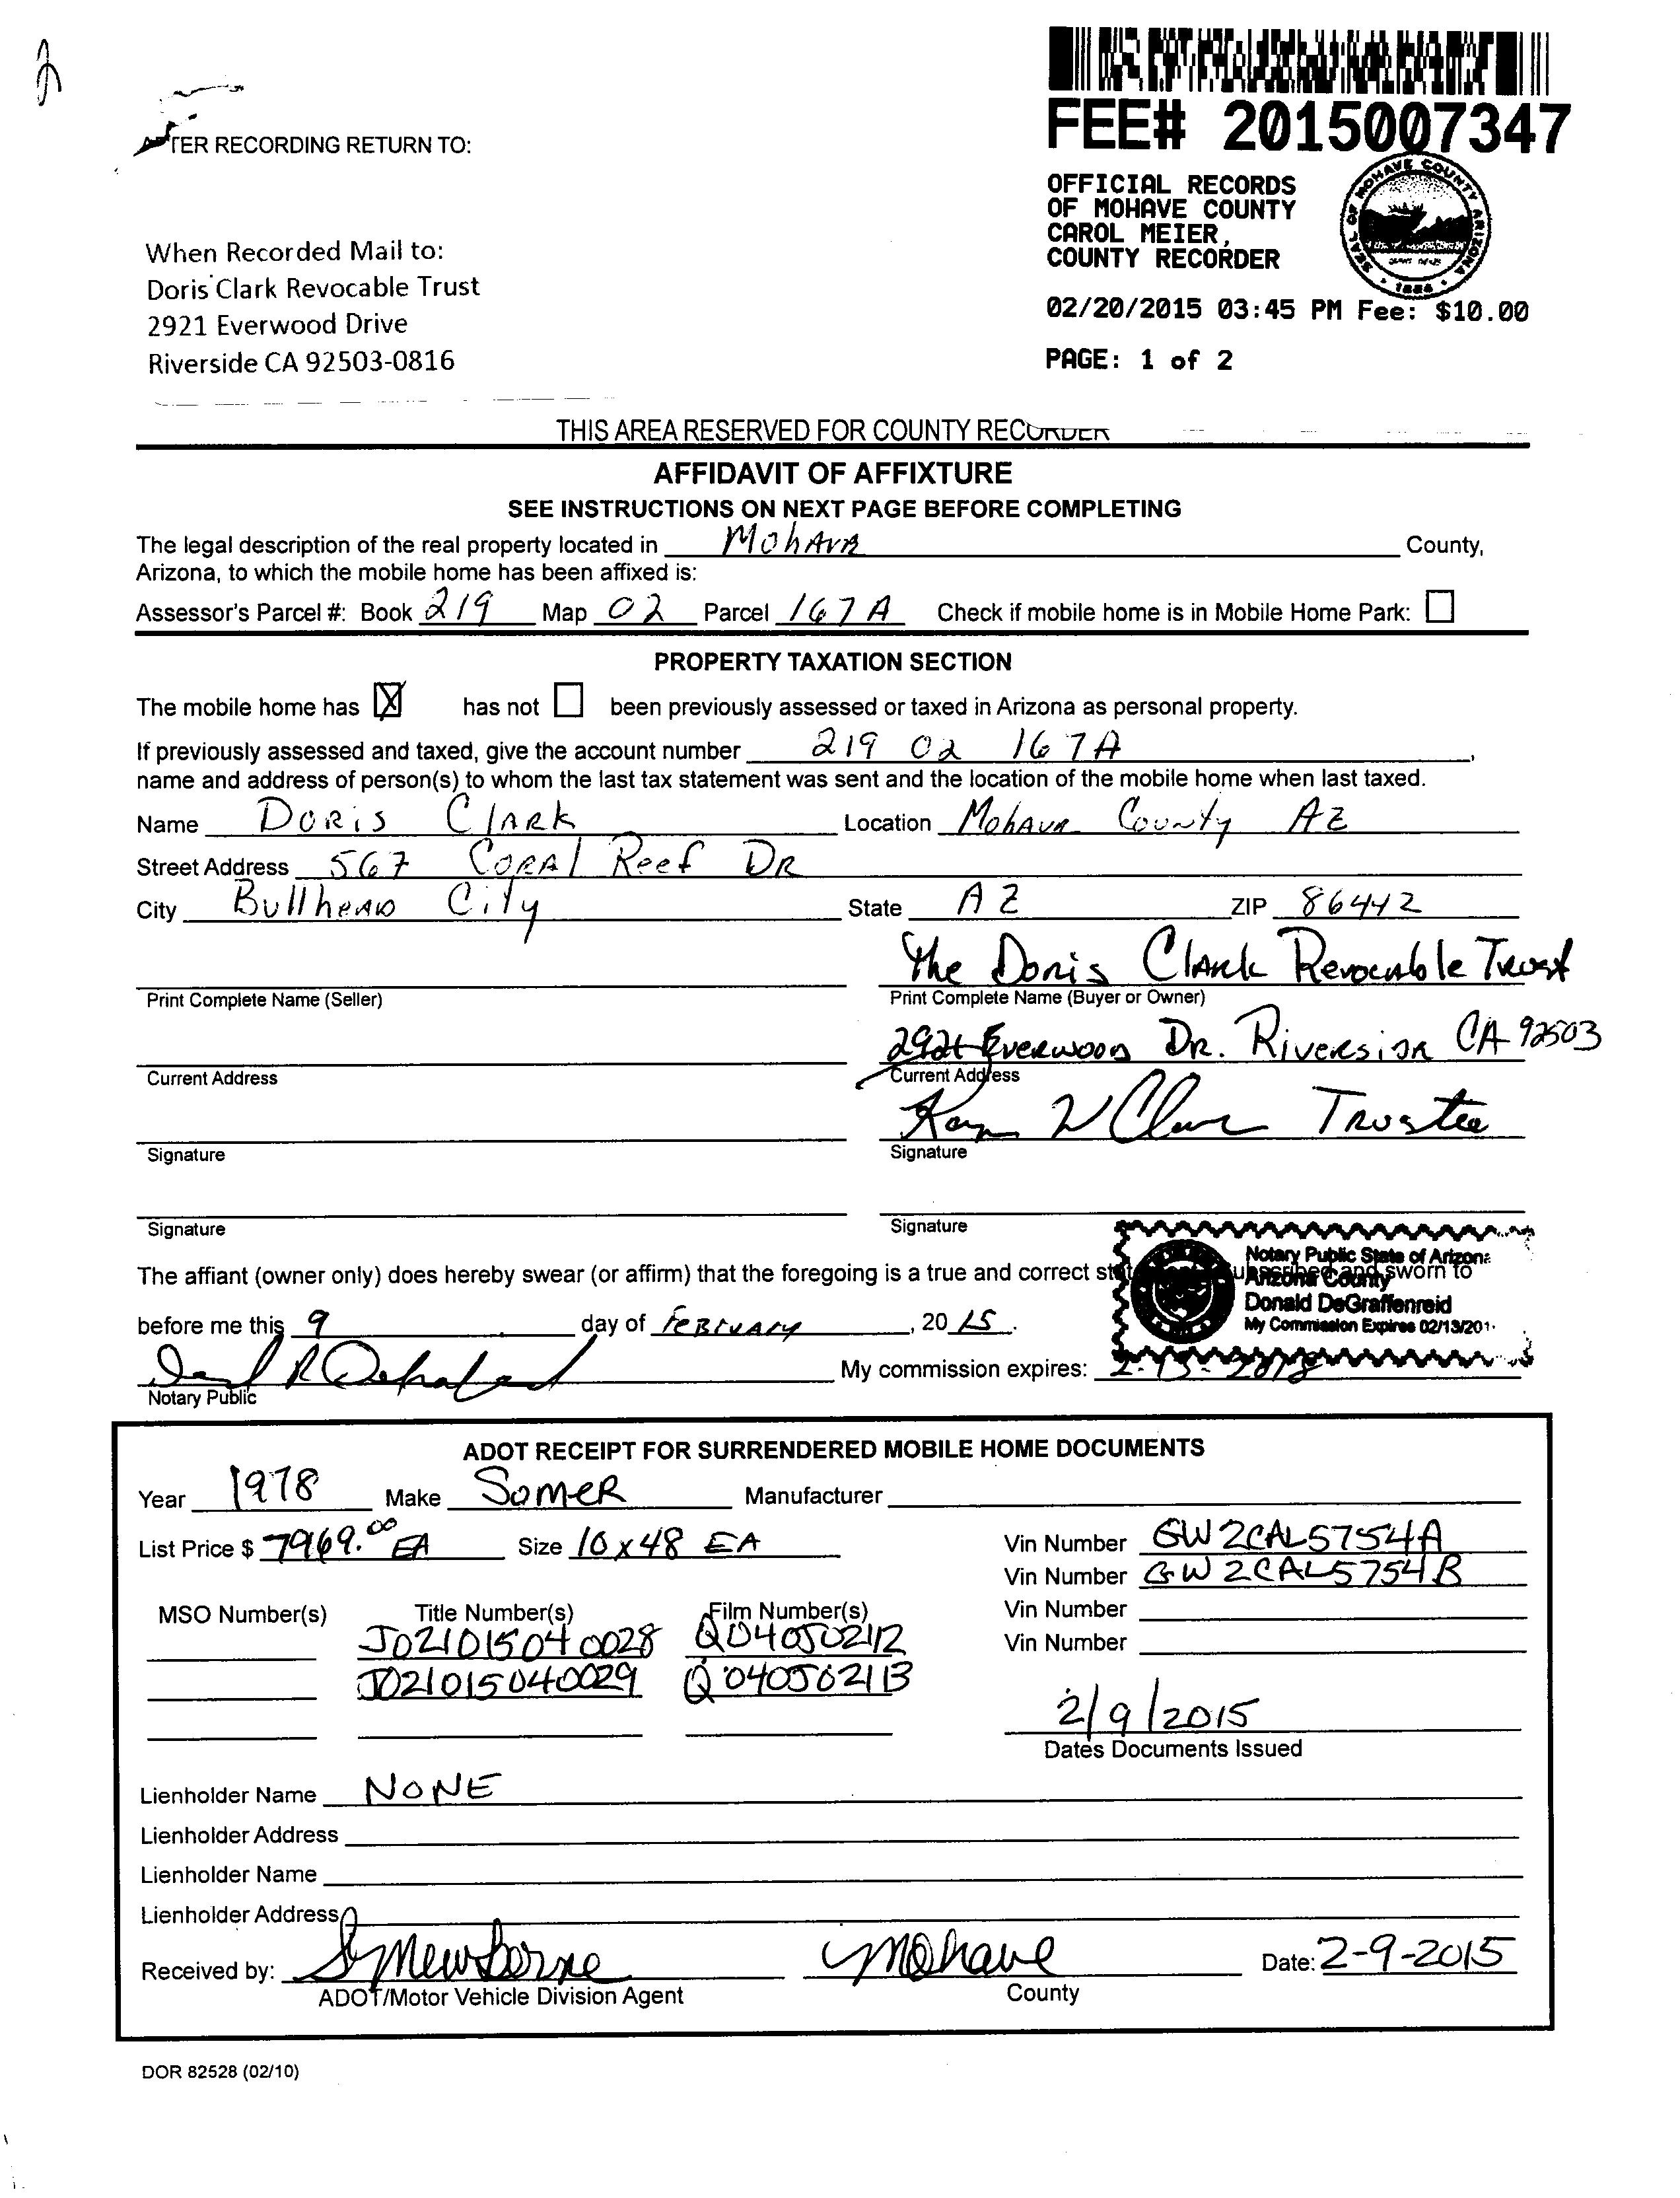 FEE# 2015007347
OFFICIAL RECORDS
OF MOHAVE COUNTY
CAROL MEIER,
COUNTY RECORDER
SEAL OF MOHAVE COUNTY ARIZONA
02/20/2015 03:45 PM Fee: $10.00
PAGE: 1 of 2
AFTER RECORDING RETURN TO:
When Recorded Mail to:
Doris Clark Revocable Trust
2921 Everwood Drive
Riverside CA 92503-0816
THIS AREA RESERVED FOR COUNTY RECORDER
AFFIDAVIT OF AFFIXTURE
SEE INSTRUCTIONS ON NEXT PAGE BEFORE COMPLETING
The legal description of the real property located in Mohave County,
Arizona, to which the mobile home has been affixed is:
Assessor's Parcel #: Book 219 Map 02 Parcel 167A Check if mobile home is in Mobile Home Park:
PROPERTY TAXATION SECTION
The mobile home has X has not been previously assessed or taxed in Arizona as personal property.
If previously assessed and taxed, give the account number 219 02 167A,
name and address of person(s) to whom the last tax statement was sent and the location of the mobile home when last taxed.
Name Doris Clark Location Mohave County AZ
Street Address 567 Coral Reef DR
City Bullhead City State AZ ZIP 86442
The Doris Clark Revocable Trust
Print Complete Name (Seller) Print Complete Name (Buyer or Owner)
2921 Everwood Dr. Riverside CA 92503
Current Address Current Address
W Clark Trustee
Signature Signature
Signature Signature
Notary Public State of Arizona
The affiant (owner only) does hereby swear (or affirm) that the foregoing is a true and correct subscribed and sworn to
Arizona County
Donald DeGraffenreid
My Commission Expires 02/13/201
before me this 9 day of February, 20 15.
My commission expires: 2-13-2018
Notary Public
ADOT RECEIPT FOR SURRENDERED MOBILE HOME DOCUMENTS
Year 1978 Make Somer Manufacturer
List Price $ 7969.00 EA Size 10 x 48 EA Vin Number GW2CAL5754A
Vin Number GW2CAL5754B
MSO Number(s) Title Number(s) Film Number(s) Vin Number
J021015040028 Q040502112 Vin Number
J021015040029 Q040502113
2/9/2015
Dates Documents Issued
Lienholder Name NONE
Lienholder Address
Lienholder Name
Lienholder Address
Received by: Newborne Mohave Date: 2-9-2015
ADOT/Motor Vehicle Division Agent County
DOR 82528 (02/10)